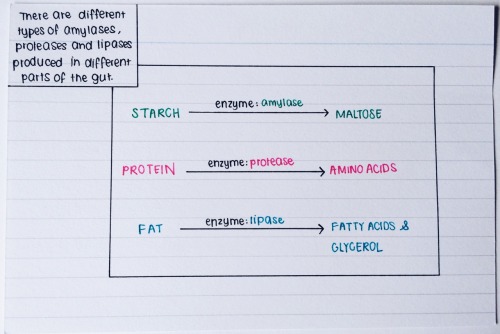 There are different
types of amylases,
proteases and lipases
produced in different
parts of the gut.
STARCH enzyme: amylase MALTOSE
PROTEIN enzyme: protease AMINO ACIDS
FAT enzyme: lipase FATTY ACIDS &
GLYCEROL